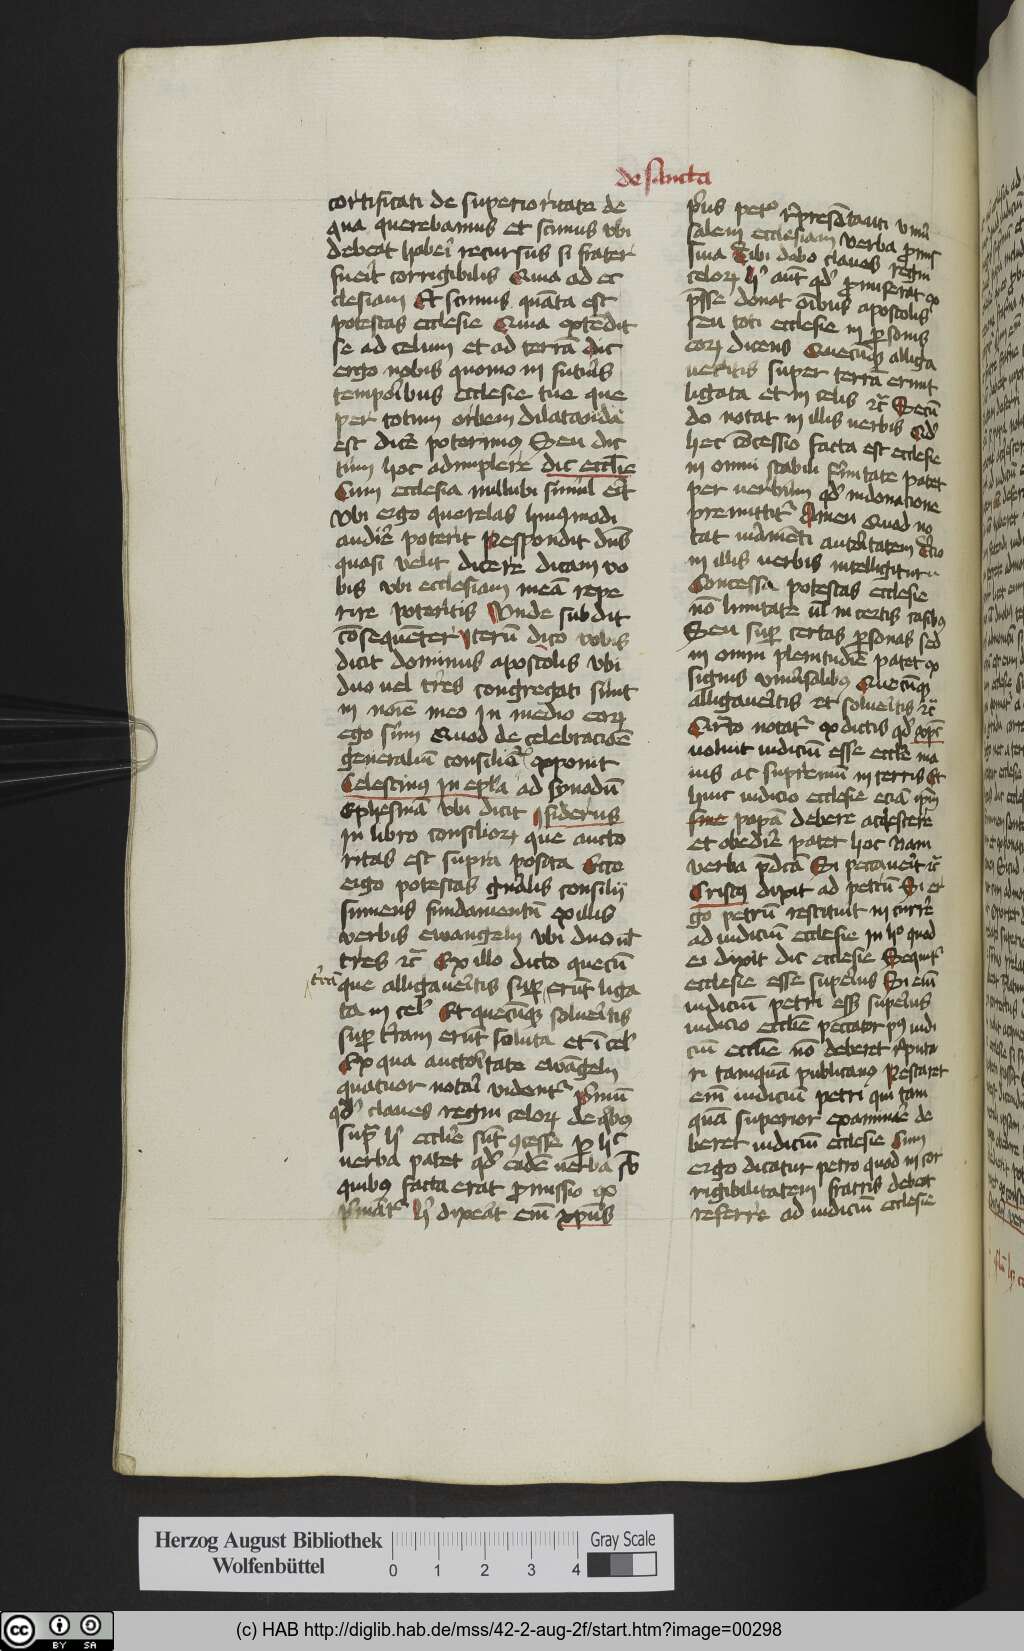 de sancta
certificati de superioritate de
qua querebamus et scimus vbi
debeat haberi recursus si frater
fuerit corrigibilis Quia ad ec
clesiam Et scimus quāta est
potestas ecclesie Quia extēdit
se ad celum et ad terrā dic
ergo nobis quomo in futuris
temporibus ecclesie tue que
per totum orbem dilatanda
est dicē poterimus Seu dic
tum hoc adimplere dic ecclie
Cum ecclesia nullubi simul erit
Vbi ergo querelas huiusmodi
audire poterit Respondit dns
quasi velit dicere dicam vo
bis vbi ecclesiam meā repe
rire poteritis Vnde subdit
cōsequenter iterū dico vobis
dicit dominus apostolis vbi
duo vel tres congregati sunt
in noīe meo in medio eorū
ego sum Quod de celebracioē
generaliū consiliorū exponit
Celestinus in epla ad synodū
Ephesinā vbi dicit isiderus
in libro consiliorū que aucto
ritas est supra posita Ecce
ergo potestas gnralis consilij
sumens fundamentū ex illis
verbis ewangelij vbi duo vl
tres rc Ex illo dicto quecū
que alligaueritis sup erūt liga
terrā
ta in cel Et quecūque solueritis
sup terram erūt soluta et ī cel
Ex qua auctoritate ewāgelij
quatuor notari vident Primū
qd claues regni celorū de quibus
supra hr ecclie sūt cōcesse
verba patet qd eadē verba sb
quibus facta erat promissio
hr dixerat em xpus
prius petro representanti vniuer
salem ecclesiam verba promis
siua Tibi dabo claues regni
celorum aut qd promiserat
pīsse donat oībus apostolis
seu toti ecclesie in personis
eorū dicens Quecūque alliga
ueritis super terrā erunt
ligata et in celis rc Secū
do notat in illis verbis qd
hec cōcessio facta est ecclesie
in omni stabili firmitate patet
per verbum qd in donacione
premittit Amen Quod no
tat iuramēti auctoritatem Tercio
in illis verbis intelligitur
Concessa potestas ecclesie
nō limitate vl in certis casibus
Seu super certas personas sed
in omni plenitudīe patet ex
signis vniuersalibus Quecūque
alligaueritis et solueritis rc
Quarto notatur ex dictis qd xps
voluit iudiciū esse ecclie ma
ius ac supremū in terris Et
huic iudicio ecclesie eciā ipm
sine papā debere acquiescere
et obedire patet hoc Nam
verba pdcā Si peccauerit rc
Cristus dixit ad petrū Si er
go petrū restituit in curre
ad iudiciū ecclesie in hoc quod
ei dixit dic ecclesie Sequit
ecclesie esse superius Si em
iudiciū petri esset superius
iudicio ecclie peccator post iudi
ciū ecclie nō deberet reputa
ri tamquā publicanus Restaret
em iudiciū petri qui tam
quā superior examinare de
beret iudiciū ecclesie Cum
ergo dicatur petro quod in cor
rigibilitatem fratris debeat
referre ad iudiciū ecclesie
Herzog August Bibliothek
Wolfenbüttel
0 1 2 3 4
Gray Scale
cc BY SA
(c) HAB http://diglib.hab.de/mss/42-2-aug-2f/start.htm?image=00298